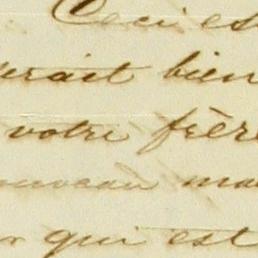 Ceci es
erait bien
votre frère
nouveau ma
qui est